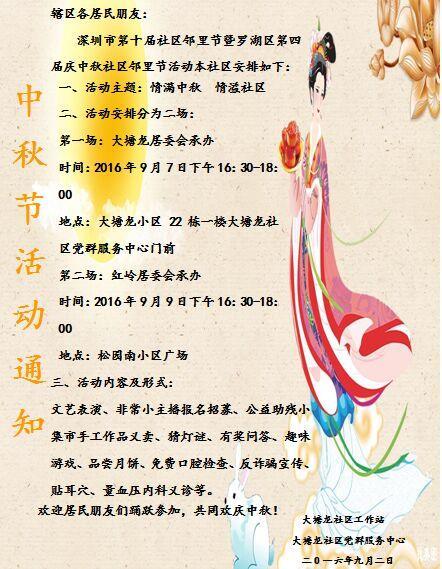 中秋节活动通知
辖区各居民朋友：
深圳市第十届社区邻里节暨罗湖区第四
届庆中秋社区邻里节活动本社区安排如下：
一、活动主题：情满中秋　情溢社区
二、活动安排分为二场：
第一场：大塘龙居委会承办
时间：2016年9月7日下午16：30-18：
00
地点：大塘龙小区 22 栋一楼大塘龙社
区党群服务中心门前
第二场：红岭居委会承办
时间：2016年9月9日下午16：30-18：
00
地点：松园南小区广场
三、活动内容及形式：
文艺表演、非常小主播报名招募、公益助残小
集市手工作品义卖、猜灯谜、有奖问答、趣味
游戏、品尝月饼、免费口腔检查、反诈骗宣传、
贴耳穴、量血压内科义诊等。
欢迎居民朋友们踊跃参加，共同欢庆中秋！
大塘龙社区工作站
大塘龙社区党群服务中心
二〇一六年九月二日